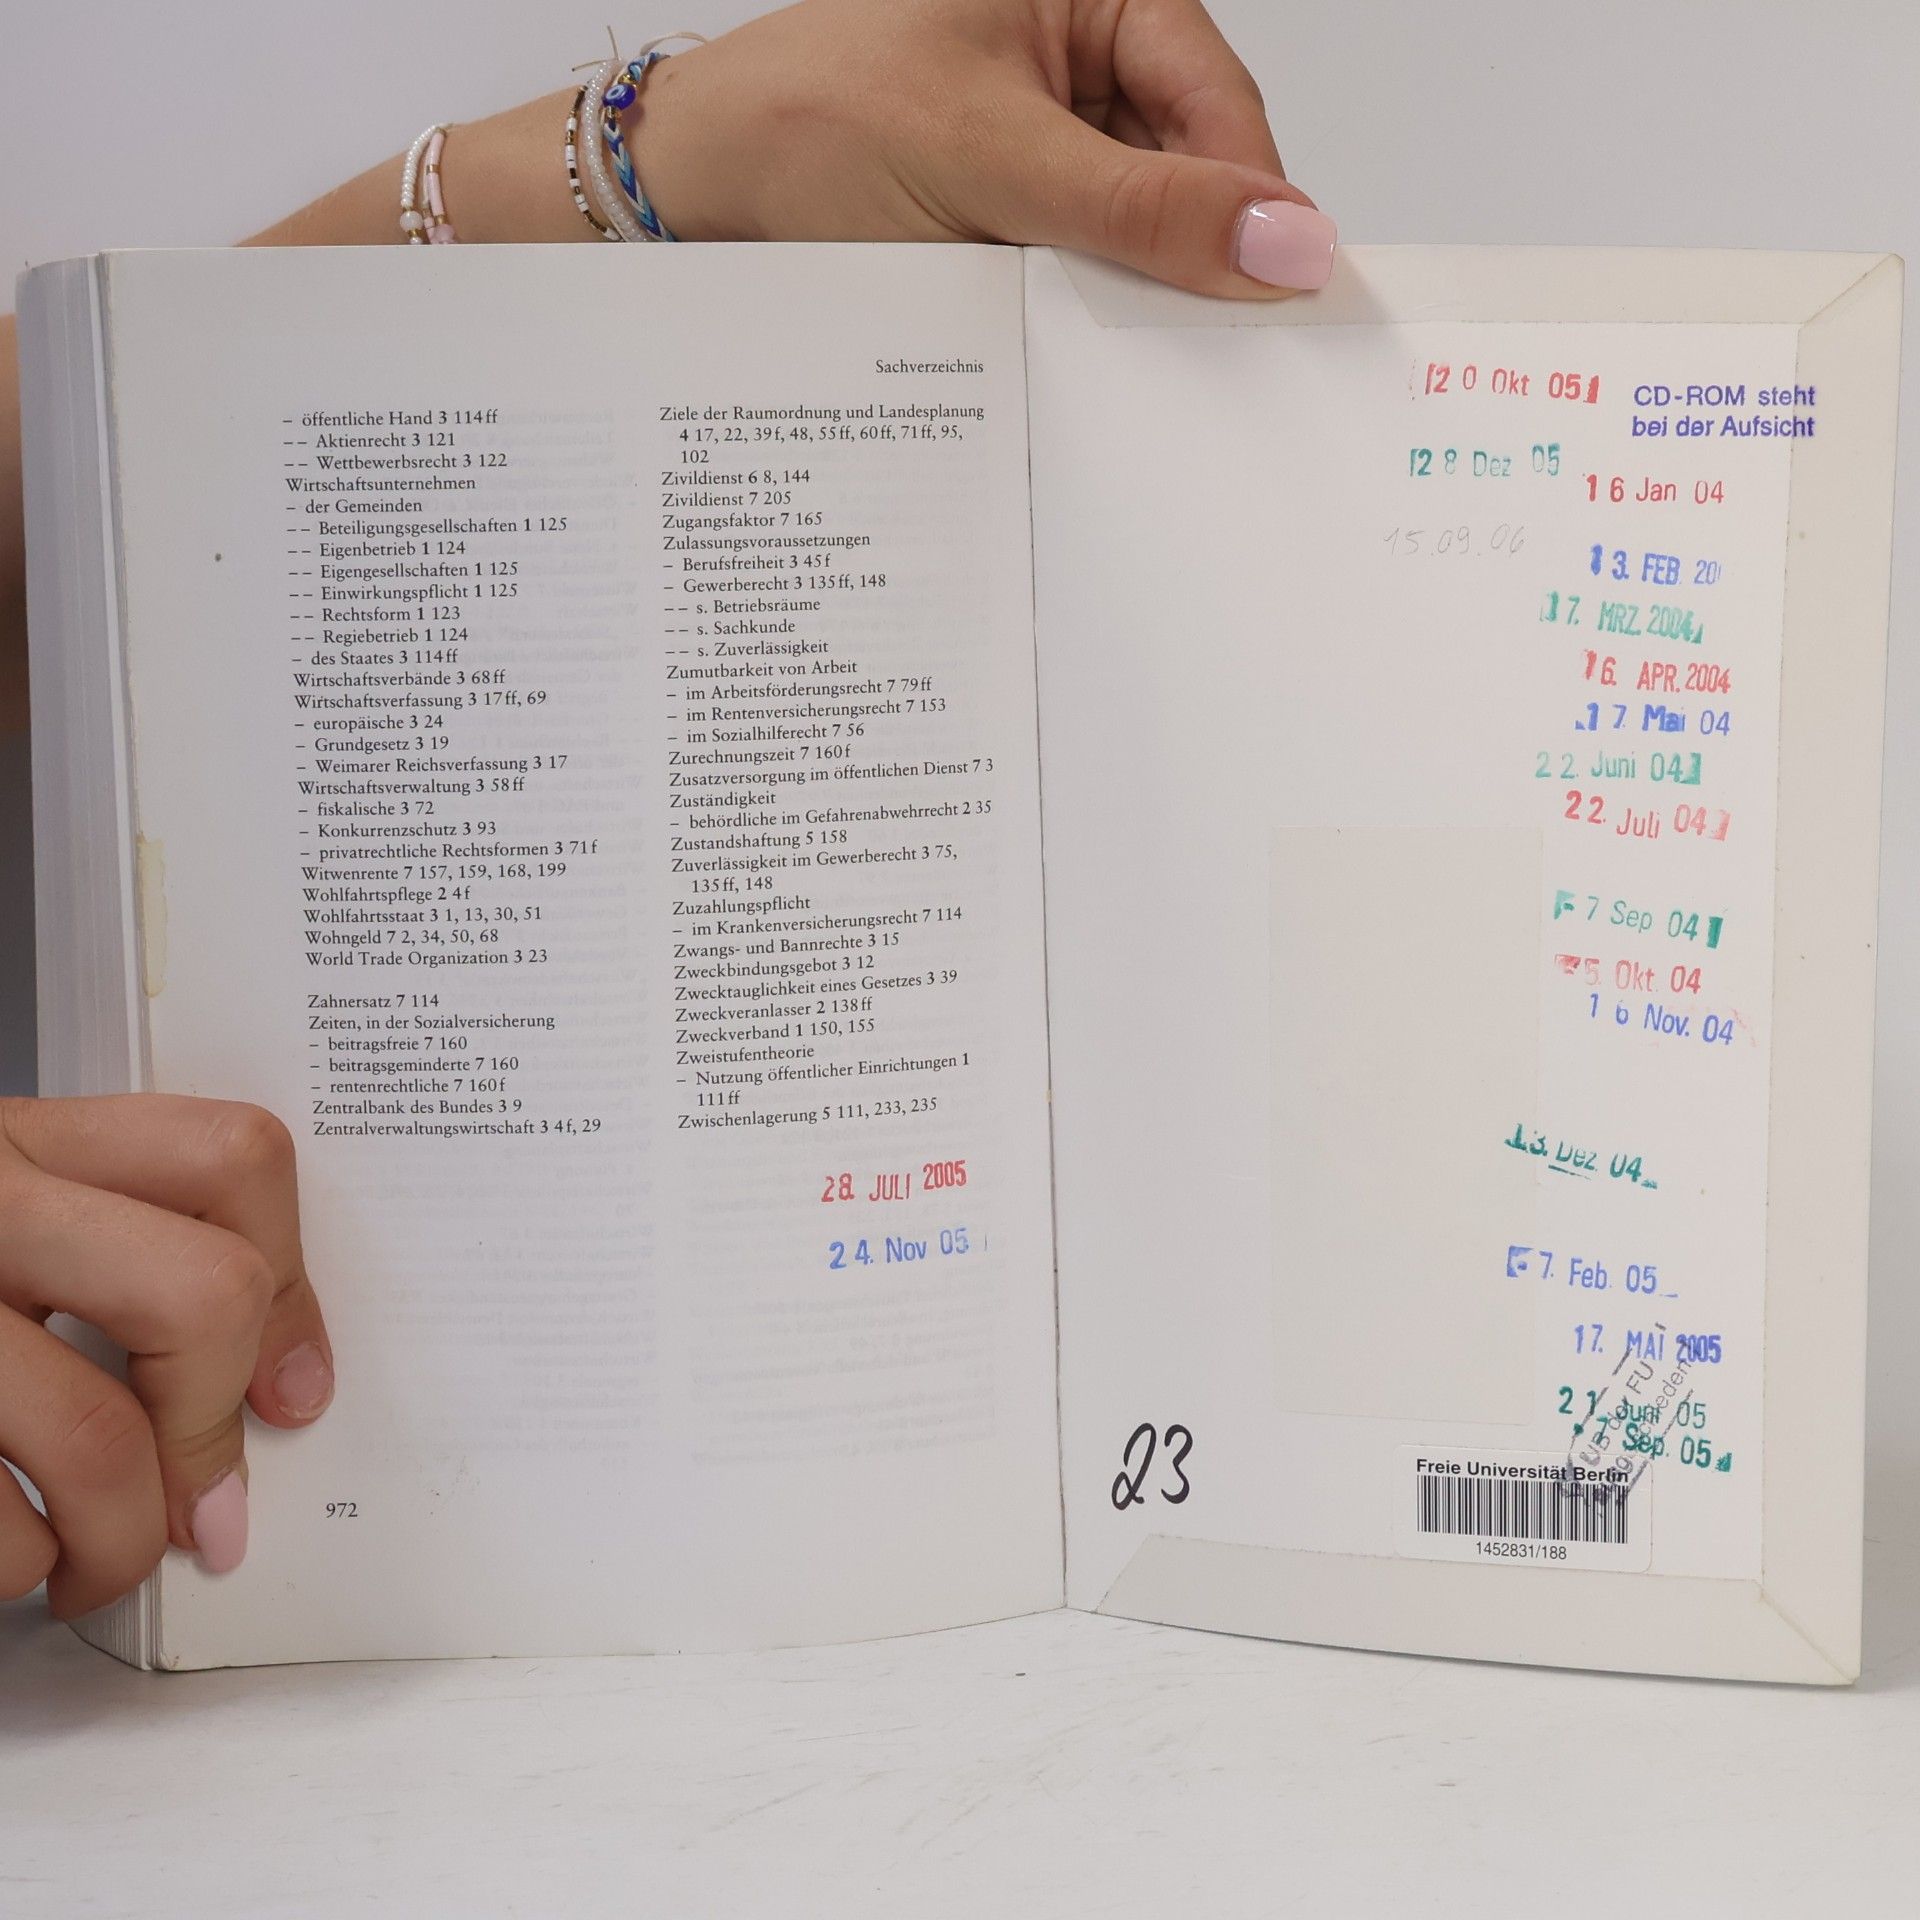 Sachverzeichnis
– öffentliche Hand 3 114 ff
– – Aktienrecht 3 121
– – Wettbewerbsrecht 3 122
Wirtschaftsunternehmen
– der Gemeinden
– – Beteiligungsgesellschaften 1 125
– – Eigenbetrieb 1 124
– – Eigengesellschaften 1 125
– – Einwirkungspflicht 1 125
– – Rechtsform 1 123
– – Regiebetrieb 1 124
– des Staates 3 114 ff
Wirtschaftsverbände 3 68 ff
Wirtschaftsverfassung 3 17 ff, 69
– europäische 3 24
– Grundgesetz 3 19
– Weimarer Reichsverfassung 3 17
Wirtschaftsverwaltung 3 58 ff
– fiskalische 3 72
– Konkurrenzschutz 3 93
– privatrechtliche Rechtsformen 3 71 f
Witwenrente 7 157, 159, 168, 199
Wohlfahrtspflege 2 4 f
Wohlfahrtsstaat 3 1, 13, 30, 51
Wohngeld 7 2, 34, 50, 68
World Trade Organization 3 23
Zahnersatz 7 114
Zeiten, in der Sozialversicherung
– beitragsfreie 7 160
– beitragsgeminderte 7 160
– rentenrechtliche 7 160 f
Zentralbank des Bundes 3 9
Zentralverwaltungswirtschaft 3 4 f, 29
Ziele der Raumordnung und Landesplanung
4 17, 22, 39 f, 48, 55 ff, 60 ff, 71 ff, 95,
102
Zivildienst 6 8, 144
Zivildienst 7 205
Zugangsfaktor 7 165
Zulassungsvoraussetzungen
– Berufsfreiheit 3 45 f
– Gewerberecht 3 135 ff, 148
– – s. Betriebsräume
– – s. Sachkunde
– – s. Zuverlässigkeit
Zumutbarkeit von Arbeit
– im Arbeitsförderungsrecht 7 79 ff
– im Rentenversicherungsrecht 7 153
– im Sozialhilferecht 7 56
Zurechnungszeit 7 160 f
Zusatzversorgung im öffentlichen Dienst 7 3
Zuständigkeit
– behördliche im Gefahrenabwehrrecht 2 35
Zustandshaftung 5 158
Zuverlässigkeit im Gewerberecht 3 75,
135 ff, 148
Zuzahlungspflicht
– im Krankenversicherungsrecht 7 114
Zwangs- und Bannrechte 3 15
Zweckbindungsgebot 3 12
Zwecktauglichkeit eines Gesetzes 3 39
Zweckveranlasser 2 138 ff
Zweckverband 1 150, 155
Zweistufentheorie
– Nutzung öffentlicher Einrichtungen 1
111 ff
Zwischenlagerung 5 111, 233, 235
28. JULI 2005
24. Nov 05
972
20 Okt 05
CD-ROM steht
bei der Aufsicht
28 Dez 05
16 Jan 04
15.09.06
3. FEB. 20
17. MRZ. 2004
16. APR. 2004
17. Mai 04
22. Juni 04
22. Juli 04
7 Sep 04
5. Okt. 04
16 Nov. 04
13. Dez. 04
7. Feb. 05
17. MAI 2005
21 Juni 05
7 Sep. 05
UB der FU
23
Freie Universität Berlin
1452831/188